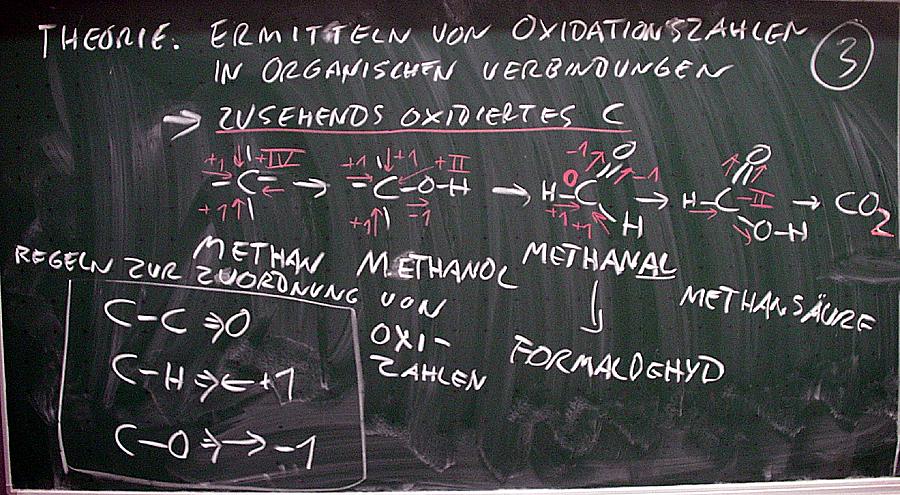 THEORIE: ERMITTELN VON OXIDATIONSZAHLEN
IN ORGANISCHEN VERBINDUNGEN
3
→ ZUSEHENDS OXIDIERTES C
+1 +IV
-C-
+1
→
+1 +1 +II
-C-O-H
+1 -1
→
-1 O -1
0
H-C
+1 +1
H
→
O
H-C -II
O-H
→ CO2
METHAN
METHANOL
METHANAL
↓
FORMALDEHYD
METHANSÄURE
REGELN ZUR ZUORDNUNG
VON
OXI-
ZAHLEN
C-C ⇒ 0
C-H ⇒ ← +1
C-O ⇒ → -1